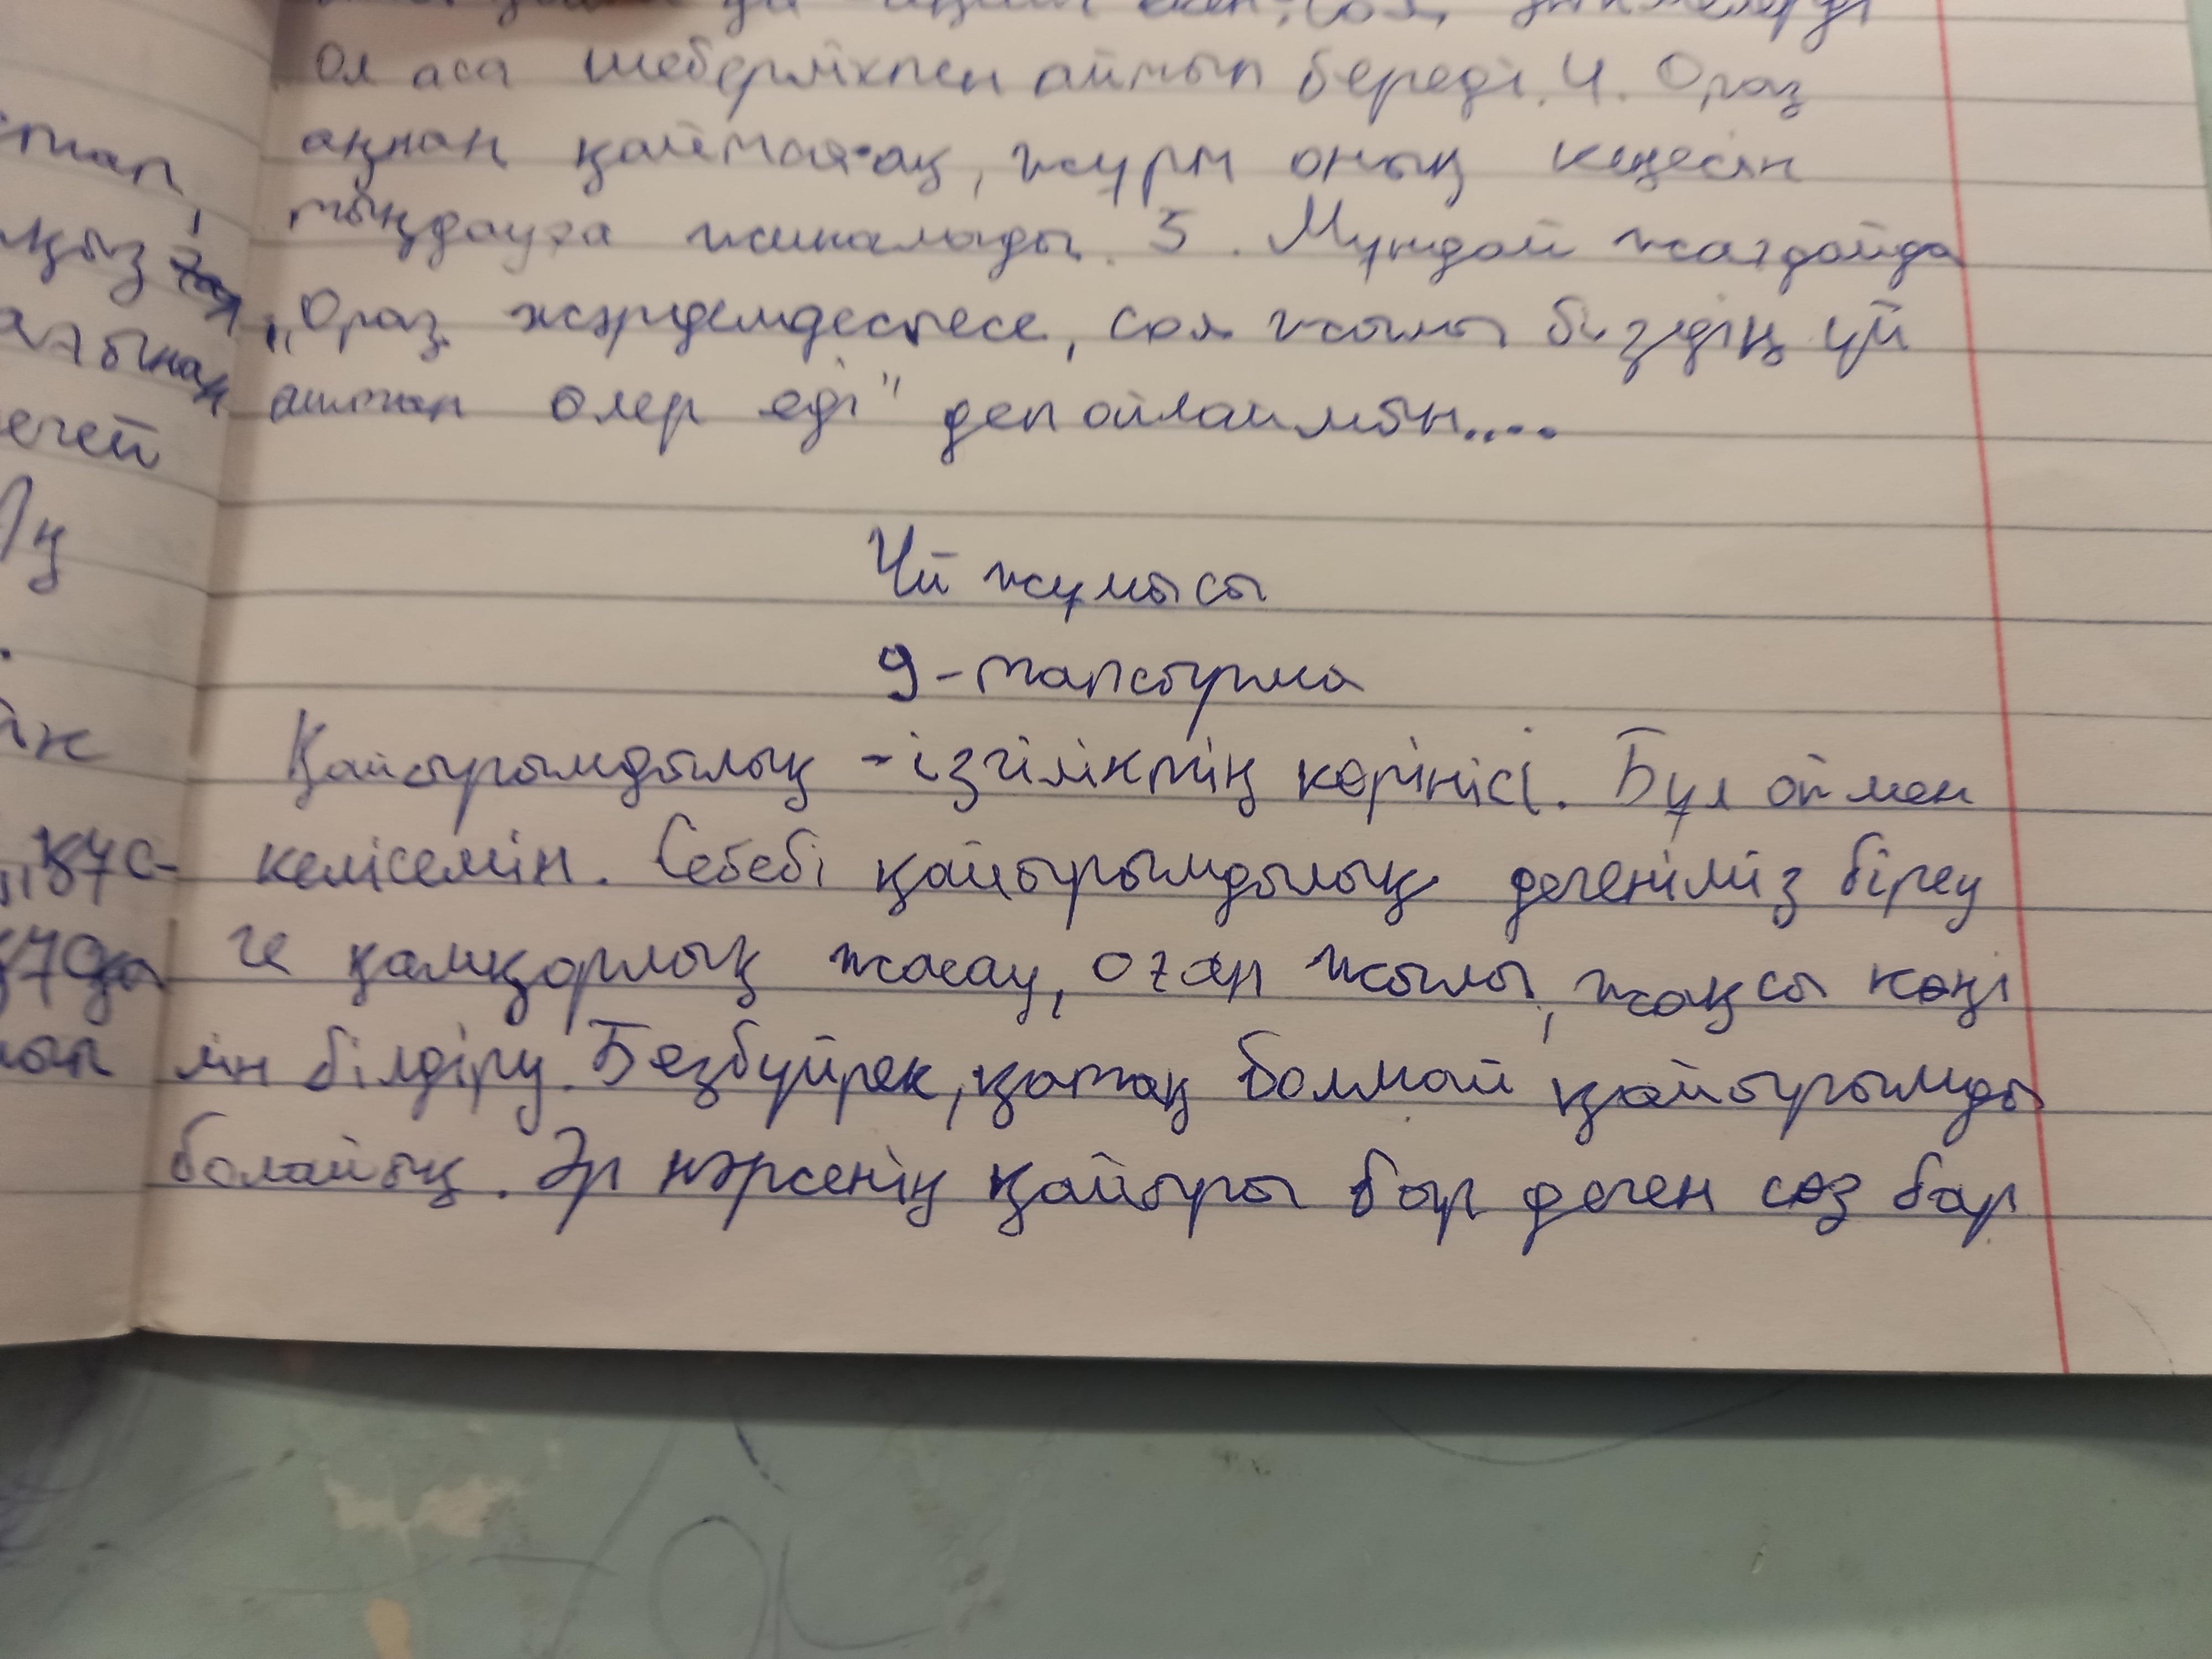 Ол аса шеберлікпен айтып береді. 4. Ораз
ақпан қаймаға-ақ, жұрт оның кеңесін
тыңдауға жиналады. 5. Мұндай жағдайда
„Ораз жәрдемдеспесе, сол жылы біздің үй
аштан өлер еді" деп ойлаймын....
Үй жұмысы
9-тапсырма
Қайырымдылық - ізгіліктің көрінісі. Бұл оймен
келісемін. Себебі қайырымдылық дегеніміз біреу
ге қамқорлық жасау, оған жылы, жақсы көңі
лін білдіру. Безбүйрек, қатаң болмай қайырымды
болайық. Әр нәрсенің қайыры бар деген сөз бар